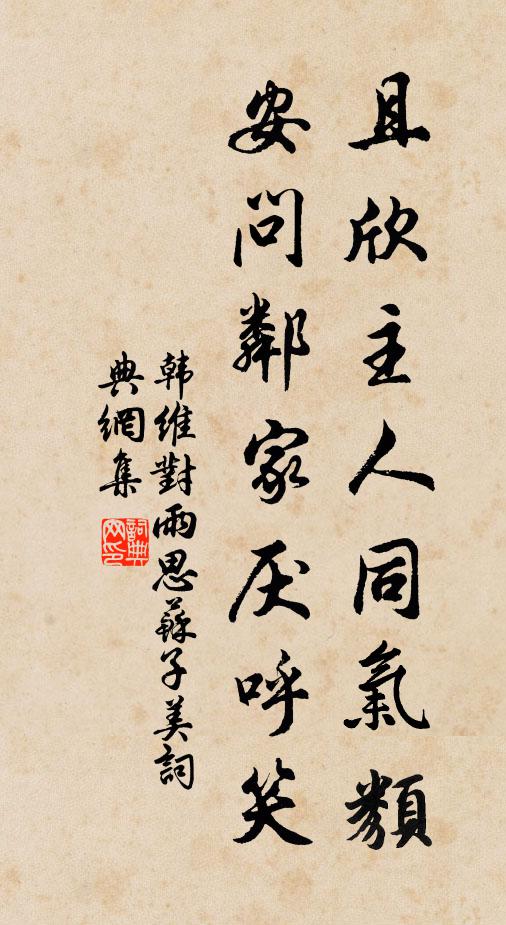 且欣主人同氣類
安問鄰家厌呼笑
韩維對雨思蘇子美詞
典網集
詞典网印